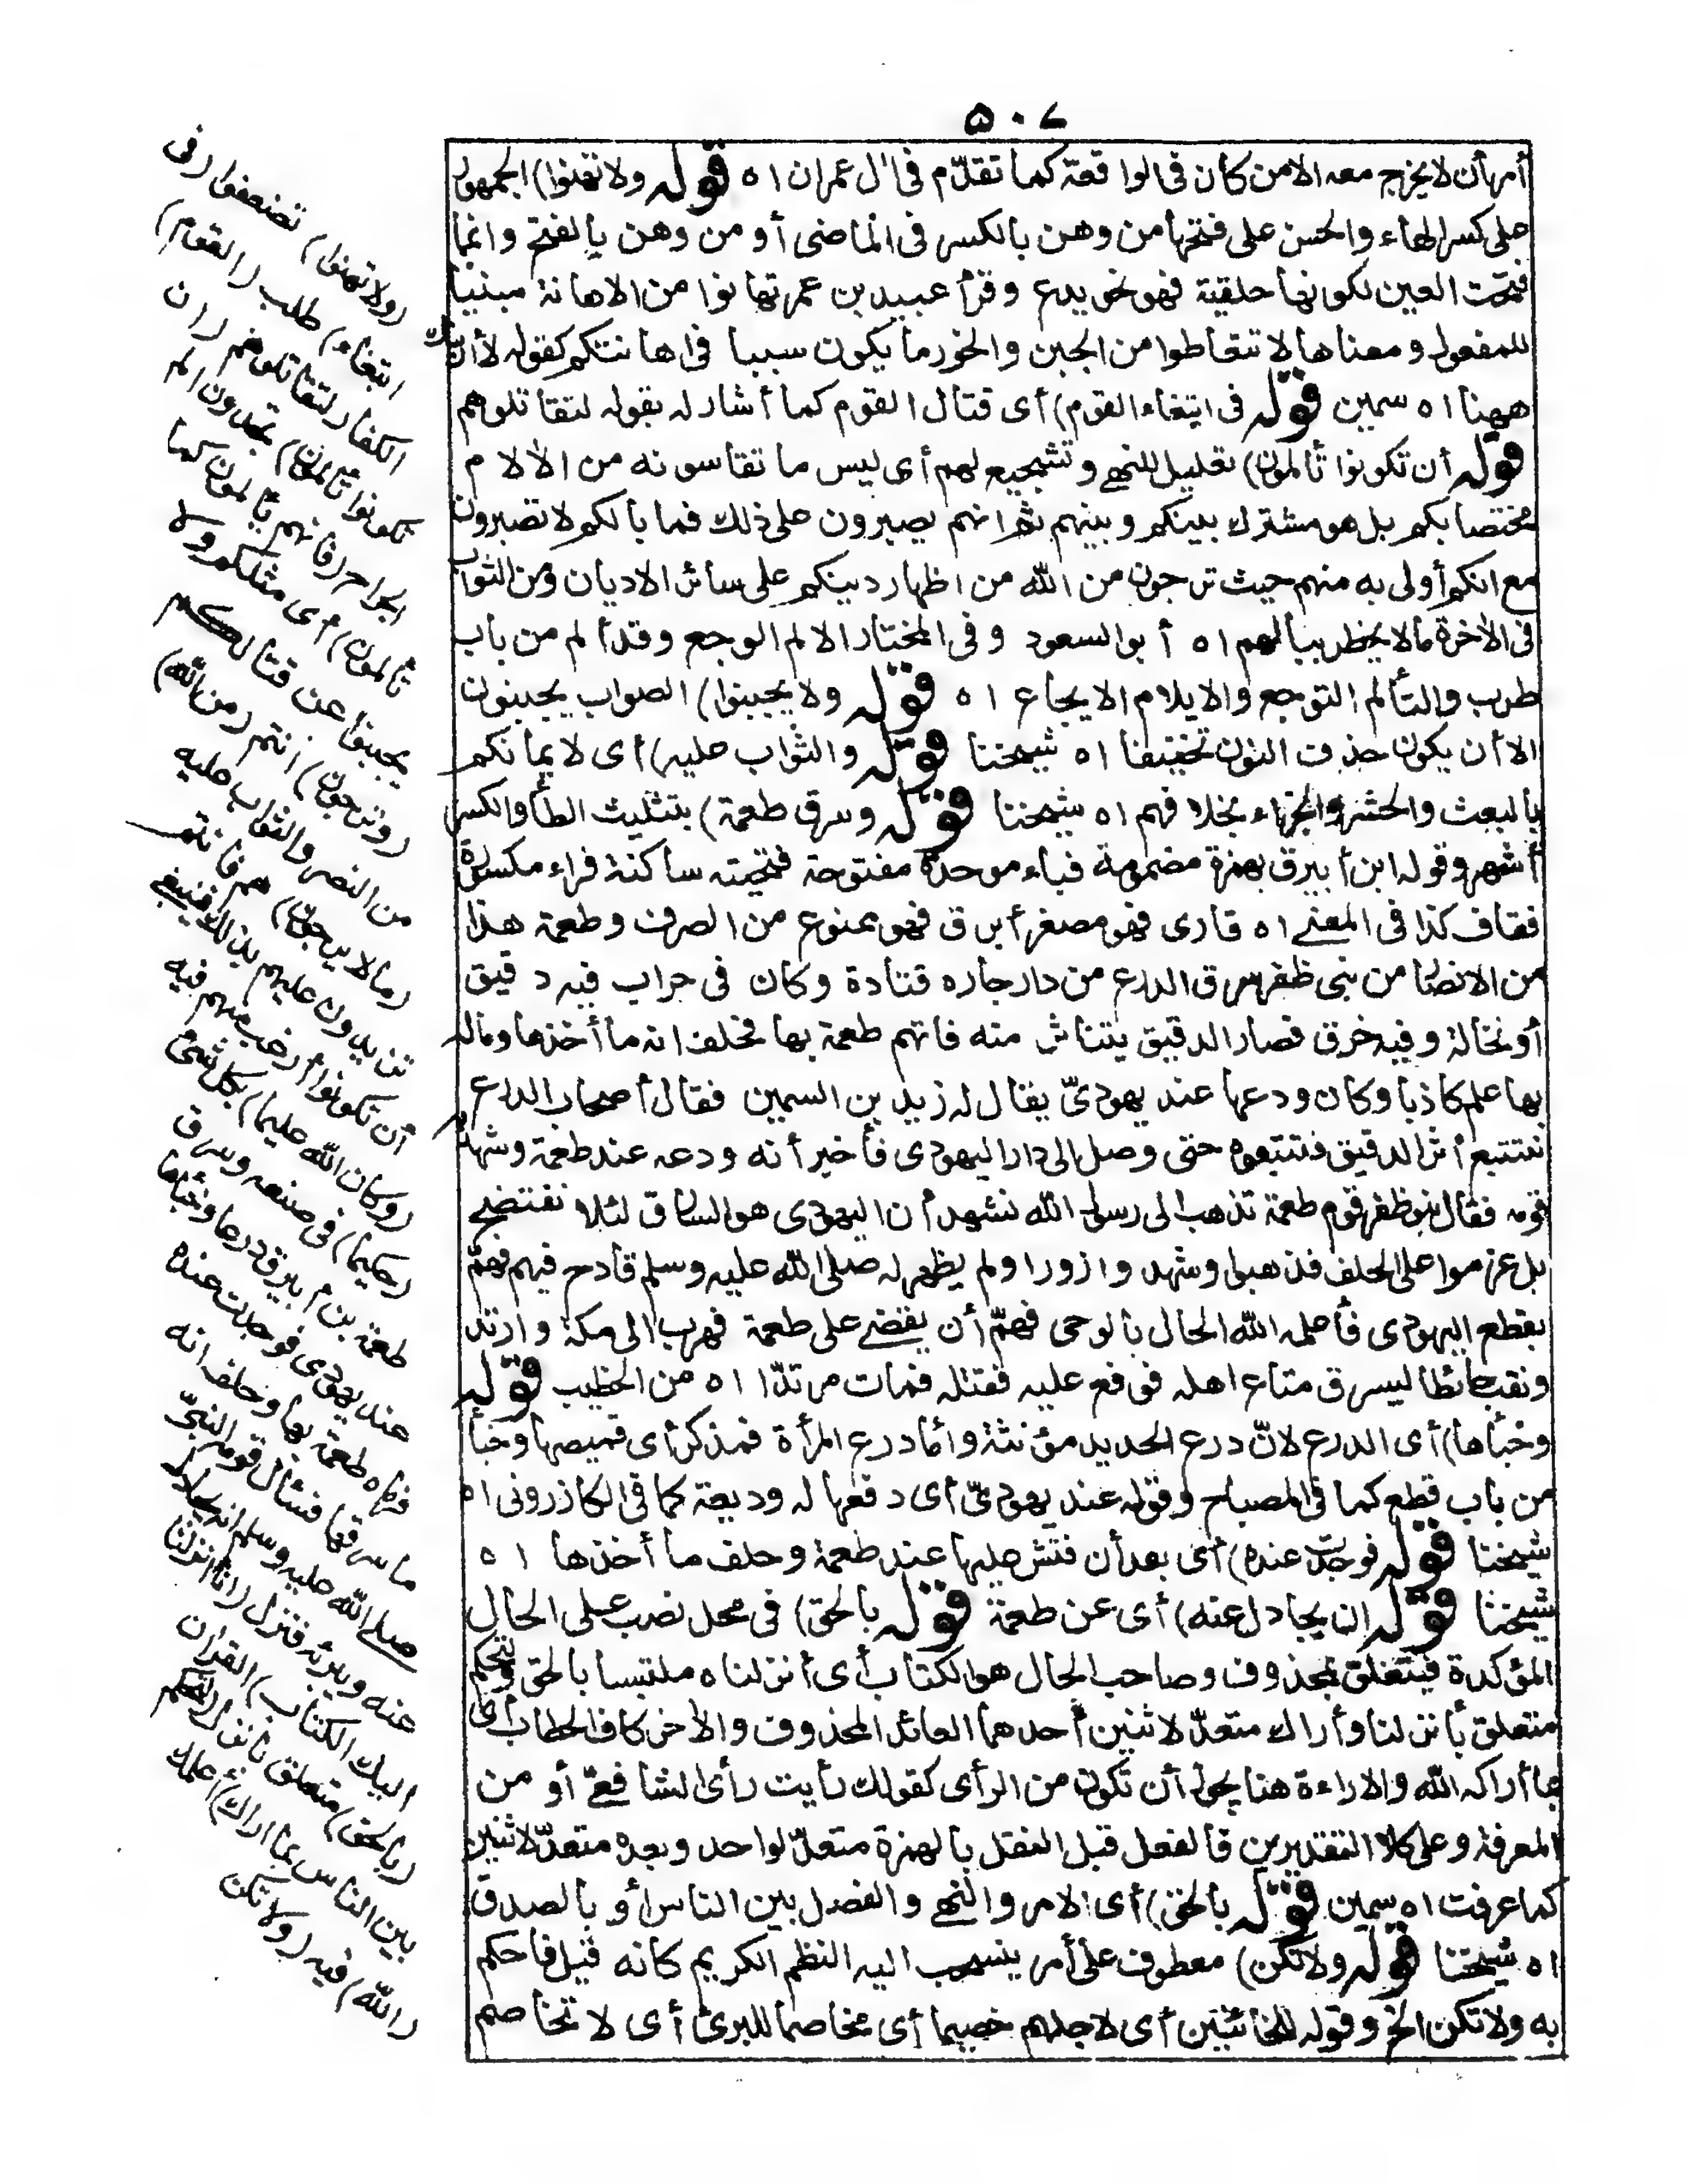 ٥٠٧
أمر أن لا يخرج معه الا من كان فى الواقعة كما تقدّم فى اٰل عمران اه قوله ولا تهنوا) الجمهور
على كسر الهاء والحسن على فتحها من وهن بالكسر فى الماضى أو من وهن بالفتح وانما
فتحت العين لكونها حلقية فهو نحو يدع وقرأ عبيد بن عمر تهانوا من الاهانة مبنيا
للمفعول ومعناها لا تتعاطوا من الجبن والخور ما يكون سببا فى اهانتكم كقوله لا أرينك
ههنا اه سمين قوله فى ابتغاء القوم) أى قتال القوم كما أشار له بقوله لتقاتلوهم
قوله أن تكونوا تألمون) تعليل للنهى وتشجيع لهم أى ليس ما تقاسونه من الاٰلام
مختصا بكم بل هو مشترك بينكم وبينهم ثم انهم يصبرون على ذلك فما بالكم لا تصبرون
مع انكم أولى به منهم حيث ترجون من الله من اظهار دينكم على سائر الاديان ومن الثواب
فى الاٰخرة مالا يخطر ببالهم اه أبو السعود وفى المختار الالم الوجع وقد ألم من باب
طرب والتألم التوجع والايلام الايجاع اه قوله ولا يجبنوا) الصواب يجبنون
الا أن يكون حذف النون تخفيفا اه شيخنا قوله والثواب عليه) أى لايمانكم
بالبعث والحشر والجزاء بخلافهم اه شيخنا قوله وسرق طعمة) بتثليث الطأ والكسر
أشهر وقوله ابن أبيرق بهمزة مضمومة فباء موحدة مفتوحة فتحتية ساكنة فراء مكسورة
فقاف كذا فى المغنى اه قارى فهو مصغر أبرق فهو ممنوع من الصرف وطعمة هذا
من الانصار من بنى ظفر سرق الدرع من دار جاره قتادة وكان فى جراب فيه دقيق
أو نخالة وفيه خرق فصار الدقيق يتناثر منه فاتهم طعمة بها فحلف انه ما أخذها وماله
بها علم كاذبا وكان ودعها عند يهودىّ يقال له زيد بن السمين فقال أصحاب الدرع
نتتبع أثر الدقيق فتتبعوه حتى وصل الى دار اليهودى فأخبر أنه ودعه عند طعمة وشهد
قومه فقال بنو ظفر قوم طعمة نذهب الى رسول الله نشهد أن اليهودى هو السارق لئلا نفتضح
بل عزموا على الحلف فذهبوا وشهدوا زورا ولم يظهر له صلى الله عليه وسلم قادح فيهم فهمّ
بقطع اليهودى فأعلمه الله الحال بالوحى فهمّ أن يقضى على طعمة فهرب الى مكة وارتد
ونقب حائطا ليسرق متاع اهله فوقع عليه فقتله فمات مرتدّا اه من الخطيب قوله
وخبأها) أى الدرع لانّ درع الحديد مؤنثة وأما درع المرأة فمذكر أى قميصها وخبأ
من باب قطع كما فى المصباح وقوله عند يهودىّ أى دفعها له وديعة كما فى الكازرونى اه
شيخنا قوله فوجدت عنده) أى بعد أن فتش عليها عند طعمة وحلف ما أخذها اه
شيخنا قوله ان يجادل عنه) أى عن طعمة قوله بالحق) فى محل نصب على الحال
المؤكدة فيتعلق بمحذوف وصاحب الحال هو الكتاب أى أنزلناه ملتبسا بالحق ولتحكم
متعلق بأنزلنا وأراك متعدّ لاثنين أحدهما العائد المحذوف والاٰخر كاف الخطاب أى
بما أراكه الله والاراءة هنا يجوز أن تكون من الرأى كقولك رأيت رأى الشافعى أو من
المعرفة وعلى كلا التقديرين فالفعل قبل النقل بالهمزة متعدّ لواحد وبعده متعدّ لاثنين
كما عرفت اه سمين قوله بالحق) أى الامر والنهى والفصل بين الناس أو بالصدق
اه شيخنا قوله ولا تكن) معطوف على أمر ينسحب اليه النظم الكريم كانه قيل فاحكم
به ولا تكن الخ وقوله للخائنين أى لاجلهم خصيما أى مخاصما للبرئ أى لا تخاصم
(ولا تهنوا) تضعفوا (فى
ابتغاء) طلب (القوم)
الكفار لتقاتلوهم (ان
تكونوا تألمون) تجدون الم
الجراح (فانهم يألمون كما
تألمون) أى مثلكم ولا
يجبنوا عن قتالكم
(وترجون) انتم (من الله)
من النصر والثواب عليه
(مالا يرجون) هم فانتم
تزيدون عليهم بذلك فينبغى
أن تكونوا أرغب منهم فيه
(وكان الله عليما) بكل شئ
(حكيما) فى صنعه وسرق
طعمة بن أبيرق درعا وخبأها
عند يهودى فوجدت عنده
فرماه طعمة بها وحلف انه
ما سرقها فسأل قومه النبىّ
صلى الله عليه وسلم ان يجادل
عنه ويبرئه فنزل (انا انزلنا
اليك الكتاب) القراٰن
(بالحق) متعلق بانزل (لتحكم
بين الناس بما اراك) أعلمك
(الله) فيه (ولا تكن